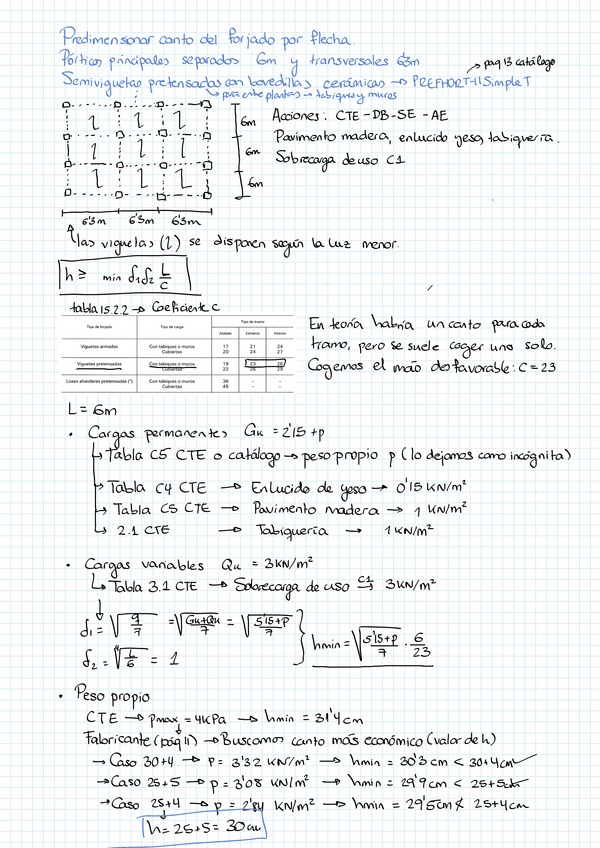 Predimensionar canto del forjado por flecha.
Pórticos principales separados 6m y transversales 6'3m
→ pag 13 catálogo
Semiviguetas pretensadas con bovedillas cerámicas → PREFHORT-11 Simple T
→ para entre plantas → tabiques y muros
6m
6m
6m
Acciones: CTE-DB-SE-AE
Pavimento madera, enlucido yeso, tabiquería.
Sobrecarga de uso C1
6'3m 6'3m 6'3m
las viguetas (l) se disponen según la luz menor.
h ≥ min δ1 δ2 L/C
tabla 15.2.2 → Coeficiente C
Tipo de forjado Tipo de carga Tipo de tramo
Aislado Extremo Interior
Viguetas armadas Con tabiques o muros 17 21 24
Cubiertas 20 24 27
Viguetas pretensadas Con tabiques o muros 19 23 26
Cubiertas 22 26 29
Losas alveolares pretensadas (*) Con tabiques o muros 36 - -
Cubiertas 45 - -
En teoría habría un canto para cada
tramo, pero se suele coger uno solo.
Cogemos el más desfavorable: C = 23
L = 6m
• Cargas permanentes Gk = 2'15 + p
→ Tabla C5 CTE o catálogo → peso propio p (lo dejamos como incógnita)
→ Tabla C4 CTE → Enlucido de yeso → 0'15 KN/m²
→ Tabla C5 CTE → Pavimento madera → 1 KN/m²
→ 2.1 CTE → Tabiquería → 1 KN/m²
• Cargas variables Qk = 3KN/m²
→ Tabla 3.1 CTE → Sobrecarga de uso C1 → 3KN/m²
δ1 = √(q/7) = √((Gk+Qk)/7) = √((5'15+P)/7)
δ2 = ⁴√(L/6) = 1
hmin = √((5'15+p)/7) · 6/23
• Peso propio
CTE → pmax = 4KPa → hmin = 31'4cm
Fabricante (pág 11) → Buscamos canto más económico (valor de h)
→ Caso 30+4 → P = 3'32 KN/m² → hmin = 30'3 cm < 30+4cm ✓
→ Caso 25+5 → p = 3'08 KN/m² → hmin = 29'9cm < 25+5cm ✓
→ Caso 25+4 → p = 2'84 KN/m² → hmin = 29'5cm ≮ 25+4cm
h = 25+5 = 30cm